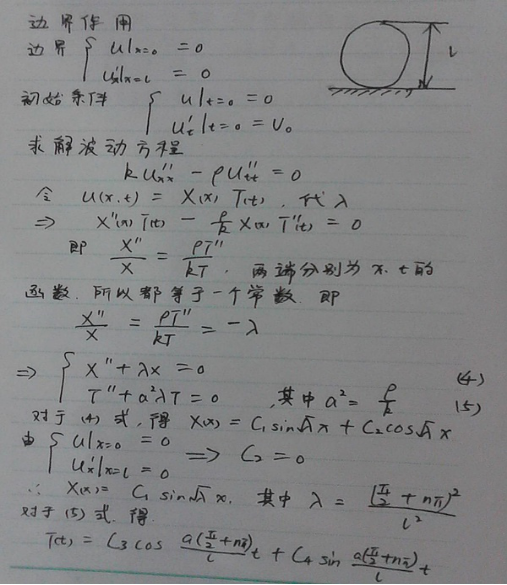 边界作用
边界 { u|x=0 = 0
u'x|x=l = 0
l
初始条件 { u|t=0 = 0
u't|t=0 = V₀
求解波动方程
k u''xx − ρ u''tt = 0
令 u(x,t) = X(x) T(t), 代入
⇒ X''(x) T(t) − ρ/k X(x) T''(t) = 0
即 X''/X = ρT''/kT , 两端分别为 x, t 的
函数, 所以都等于一个常数, 即
X''/X = ρT''/kT = −λ
⇒ { X'' + λX = 0 (4)
T'' + a²λT = 0 , 其中 a² = ρ/k (5)
对于 (4) 式, 得 X(x) = C₁ sin√λ x + C₂ cos√λ x
由 { u|x=0 = 0
u'x|x=l = 0 ⇒ C₂ = 0
∴ X(x) = C₁ sin√λ x, 其中 λ = (π/2 + nπ)²/l²
对于 (5) 式, 得
T(t) = C₃ cos a(π/2+nπ)/l t + C₄ sin a(π/2+nπ)/l t